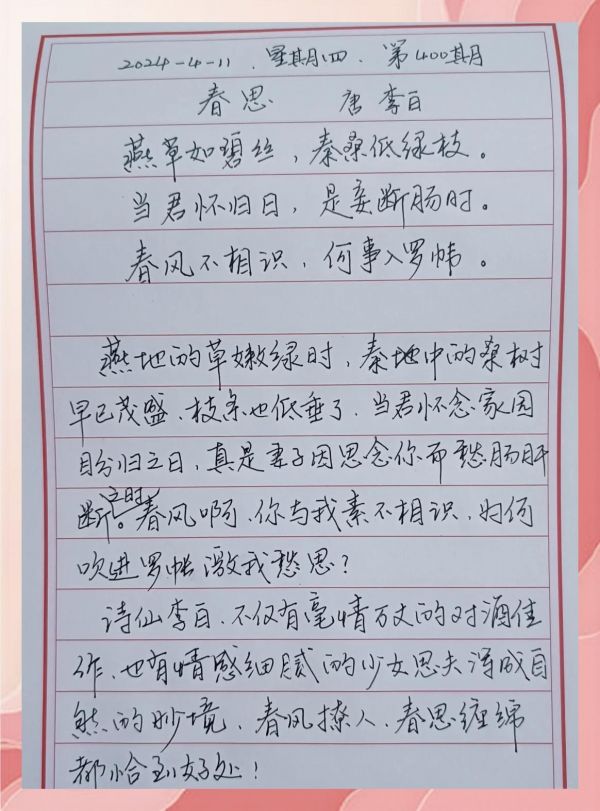 2024-4-11、星期四、第400期
春思 唐 李白
燕草如碧丝，秦桑低绿枝。
当君怀归日，是妾断肠时。
春风不相识，何事入罗帏。
燕地的草嫩绿时，秦地中的桑树
早已茂盛、枝条也低垂了、当君怀念家园
盼归之日、真是妻子因思念你而愁肠肝
断之时。春风啊、你与我素不相识、为何
吹进罗帐激我愁思？
诗仙李白、不仅有豪情万丈的对酒佳
作、也有情感细腻的少女思夫浑成自
然的妙境、春风撩人、春思缠绵
都恰到好处！